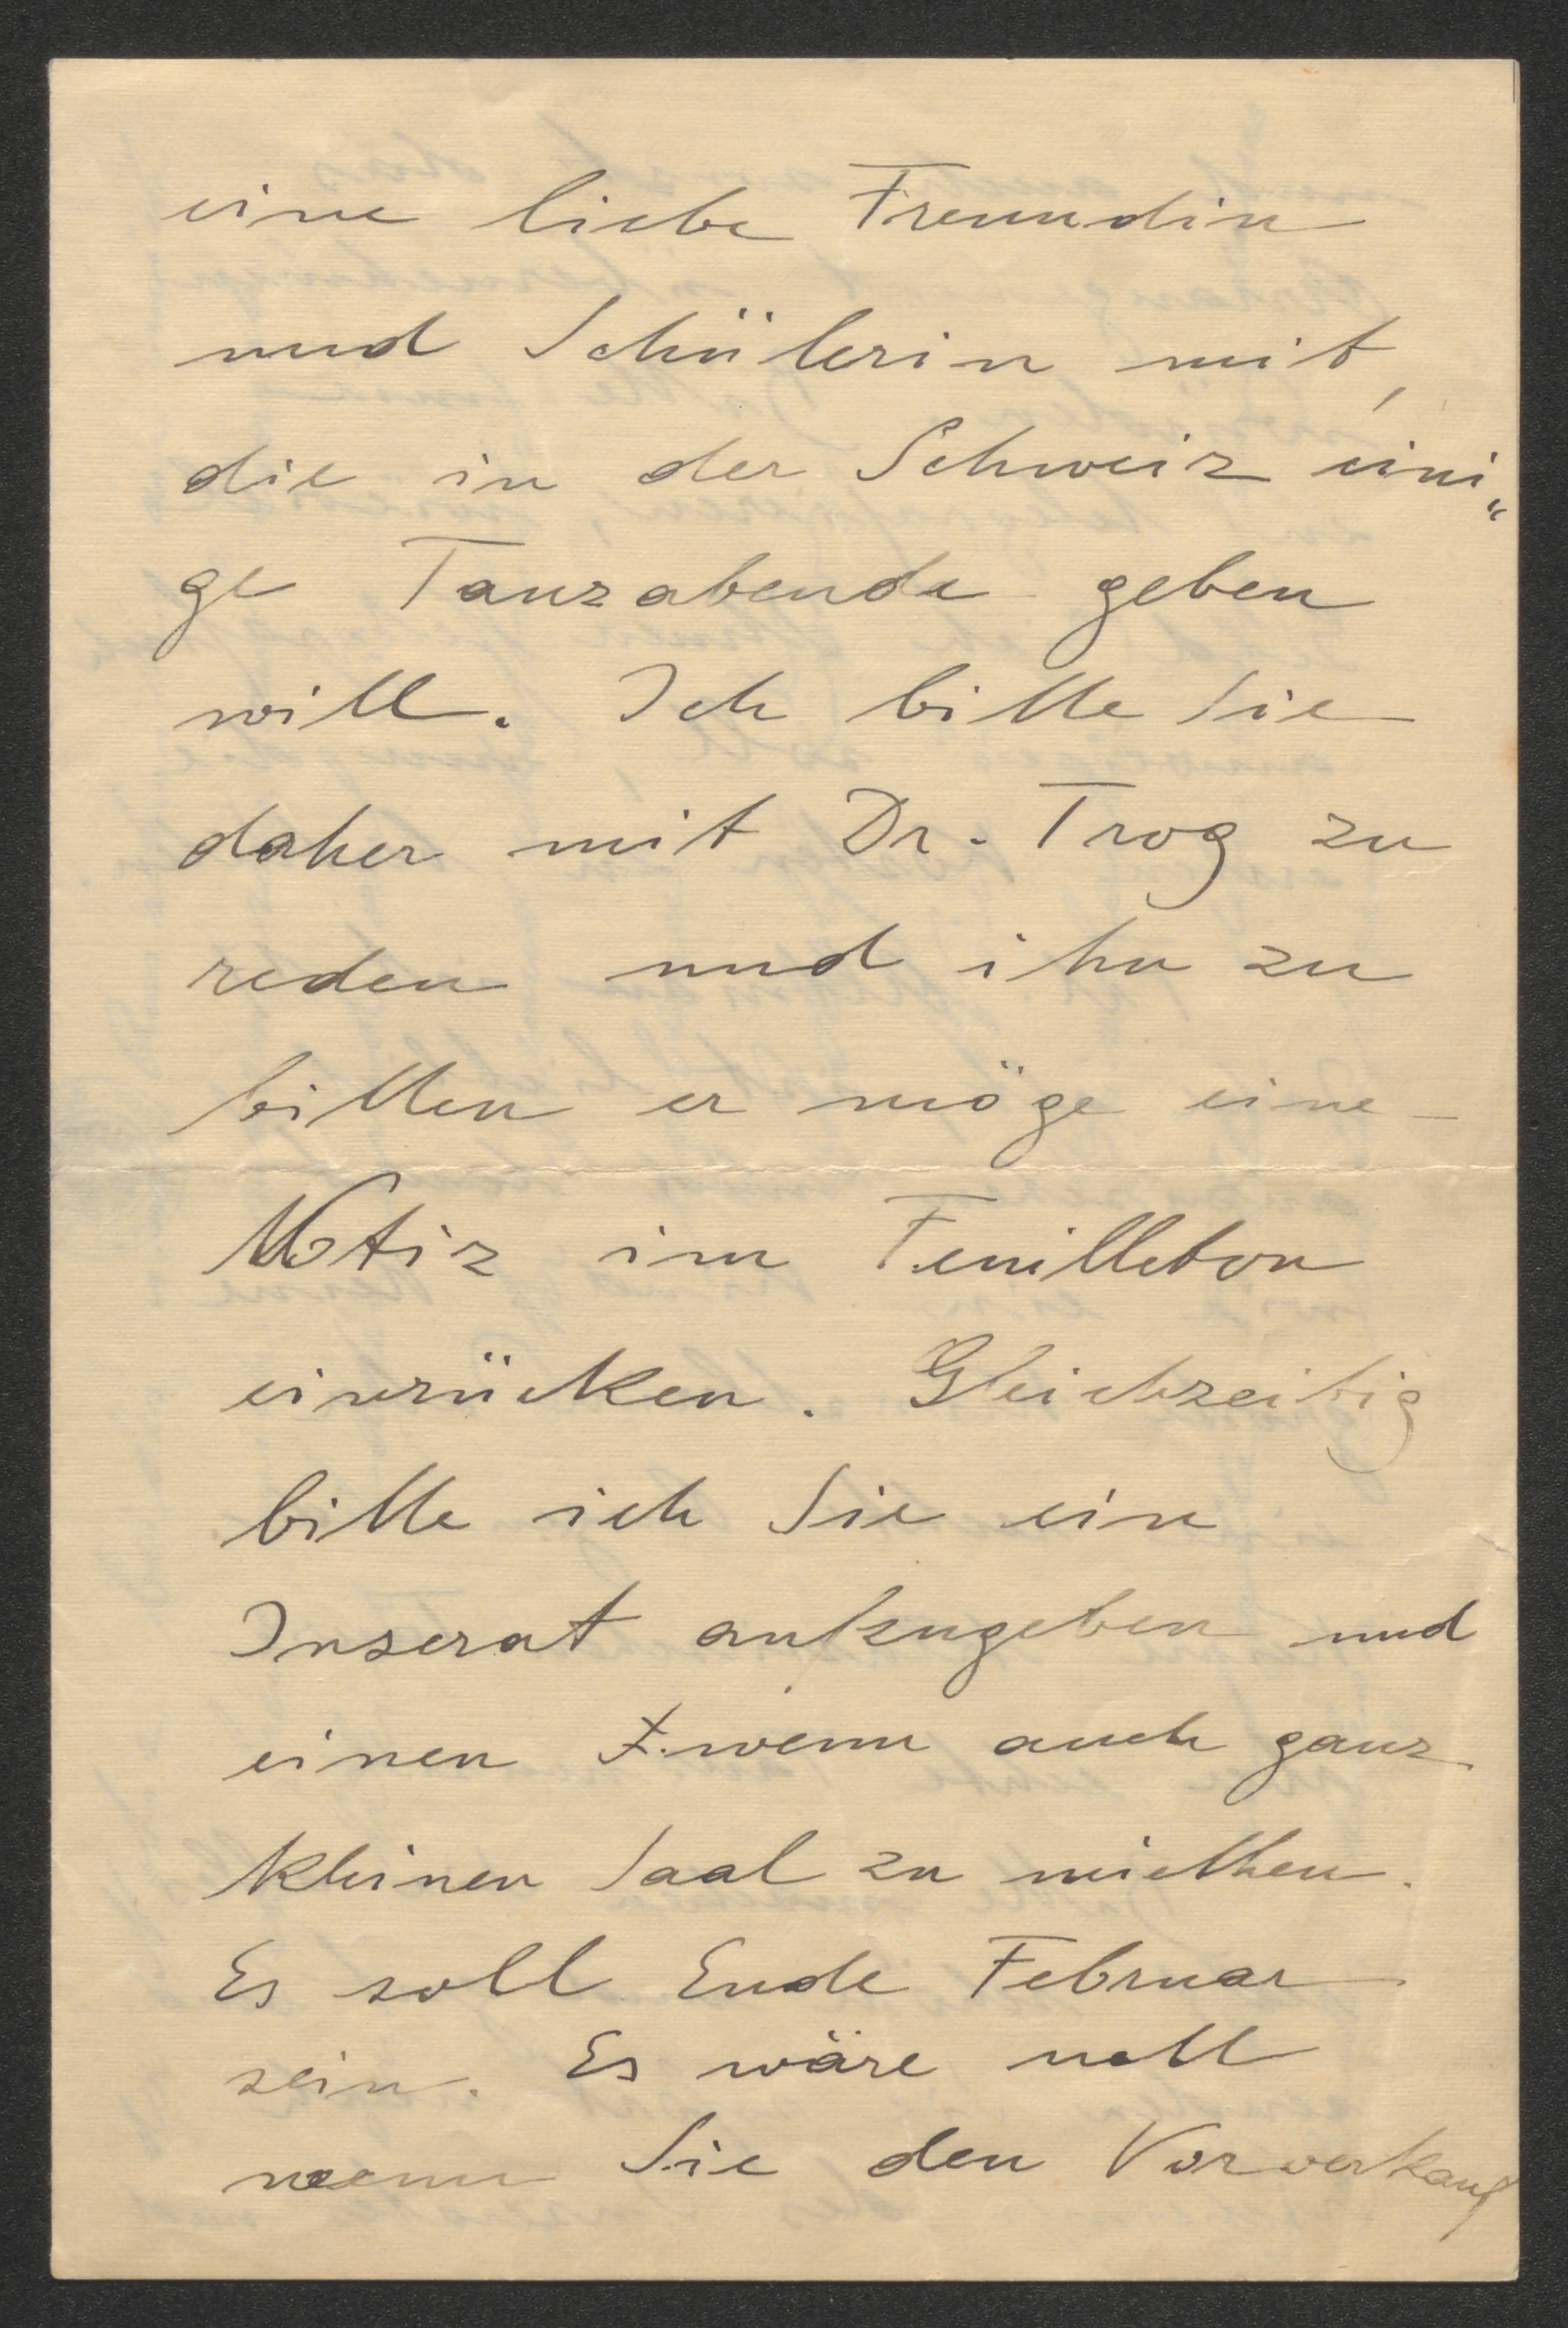 eine liebe Freundin
und Schülerin mit,
die in der Schweiz eini„
ge Tanzabende geben
will. Ich bitte Sie
daher mit Dr. Trog zu
reden und ihn zu
bitten er möge eine
Notiz im Feuilleton
einrücken. Gleichzeitig
bitte ich Sie ein
Inserat aufzugeben und
einen wenn auch ganz
kleinen Saal zu miethen.
Es soll Ende Februar
sein. Es wäre nett
wenn Sie den Vorverkauf